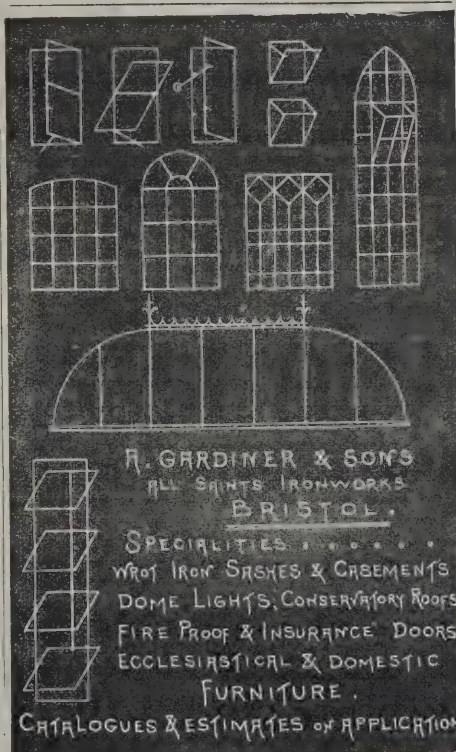 A. GARDINER & SONS
ALL SAINTS IRONWORKS
BRISTOL.
SPECIALITIES . . . . . . .
WROT IRON SASHES & CASEMENTS
DOME LIGHTS, CONSERVATORY ROOFS
FIRE PROOF & INSURANCE DOORS
ECCLESIASTICAL & DOMESTIC
FURNITURE.
CATALOGUES & ESTIMATES ON APPLICATION